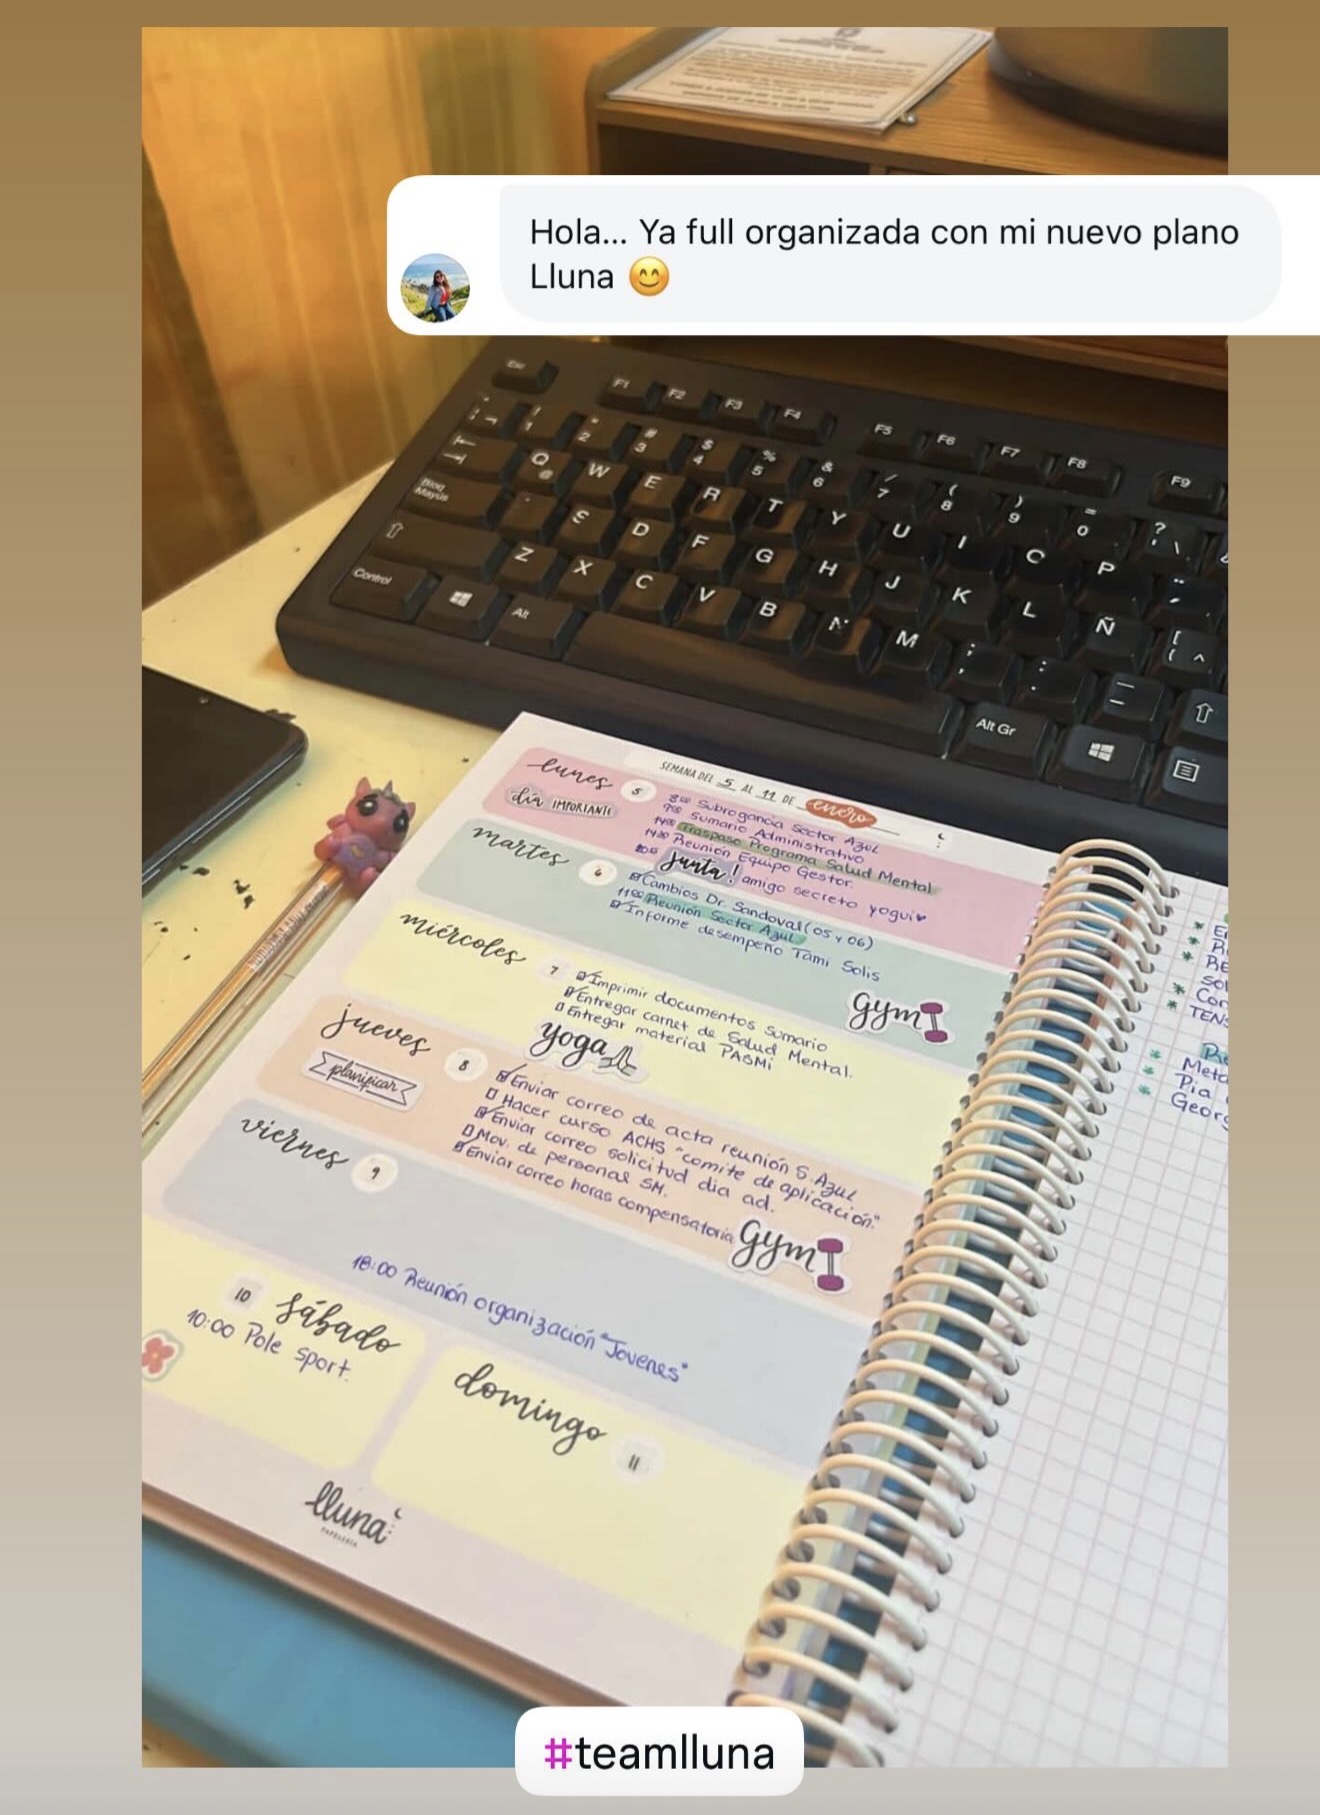 Hola... Ya full organizada con mi nuevo plano
Lluna 😊
Esc
F1 F2 F3 F4 F5 F6 F7 F8 F9
! 1 " 2 # 3 $ 4 % 5 & 6 / 7 ( 8 ) 9 = 0 ? ' \
Q @ W E R T Y U I O P
Bloq Mayús
A S D F G H J K L Ñ
Z X C V B N M
Control
Alt
Alt Gr
SEMANA DEL 5 AL 11 DE enero
lunes 5
día IMPORTANTE
8:00 Subrogancia Sector Azul
9:00 Sumario Administrativo
Traspaso Programa Salud Mental
14:30 Reunión Equipo Gestor
Junta! amigo secreto yogui♥
martes 6
Cambios Dr. Sandoval (05 y 06)
11:00 Reunión Sector Azul
Informe desempeño Tami Solis
gym
miércoles 7
Imprimir documentos Sumario
Entregar carnet de Salud Mental.
Entregar material PASMi
yoga
jueves 8
planificar
Enviar correo de acta reunión S. Azul
Hacer curso ACHS "comite de aplicación."
Enviar correo solicitud dia ad.
Mov. de personal SM.
Enviar correo horas compensatoria
gym
viernes 9
18:00 Reunión organización "Jovenes"
10 sábado
10:00 Pole sport.
domingo 11
lluna
PAPELERÍA
Pia
#teamlluna